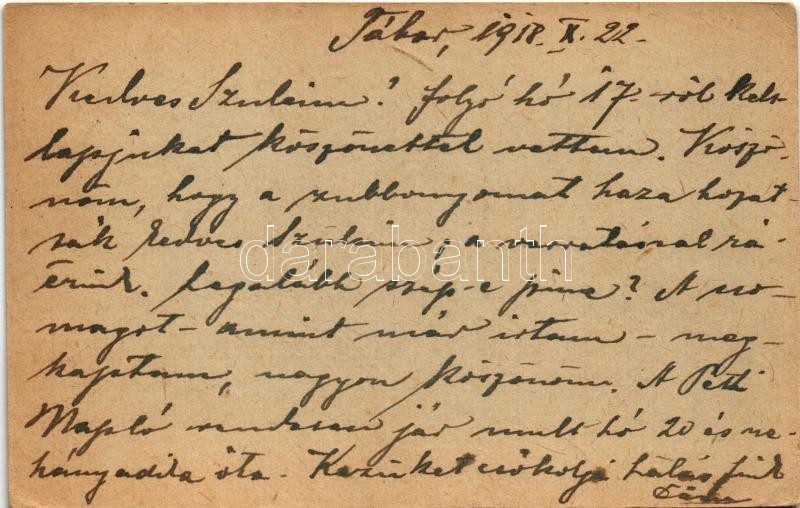 Tábor, 1918. X. 22.
Kedves Szüleim! folyó hó 17.-ről kelt
lapjukat köszönettel vettem. Köszö-
nöm, hogy a zubbonyomat haza hozat-
ják kedves Szüleim; a varratással rá-
érünk. Legalább szép-e színe? A cso-
magot - amint már írtam - meg-
kaptam, nagyon köszönöm. A Pesti
Napló rendesen jár mult hó 20 és ne-
hányadika óta. Kezüket csókolja hálás fiuk
darabanth